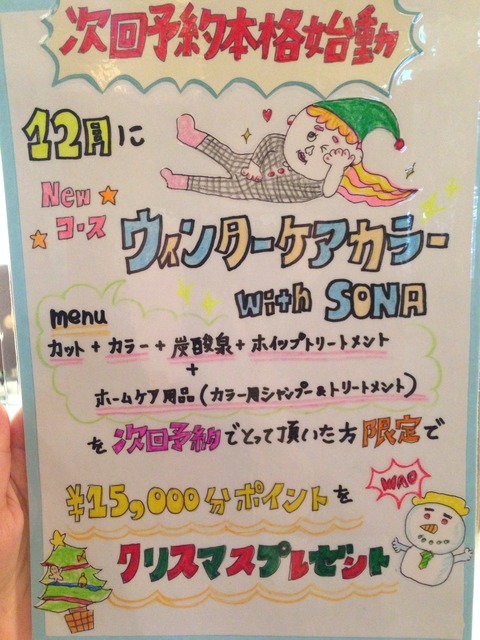 次回予約本格始動
12月に
New
コース
ウィンターケアカラー
with SONA
menu
カット + カラー + 炭酸泉 + ホイップトリートメント
+
ホームケア用品 (カラー用シャンプー&トリートメント)
を 次回予約でとって頂いた方 限定で
¥15,000分ポイントを
WAO
クリスマスプレゼント